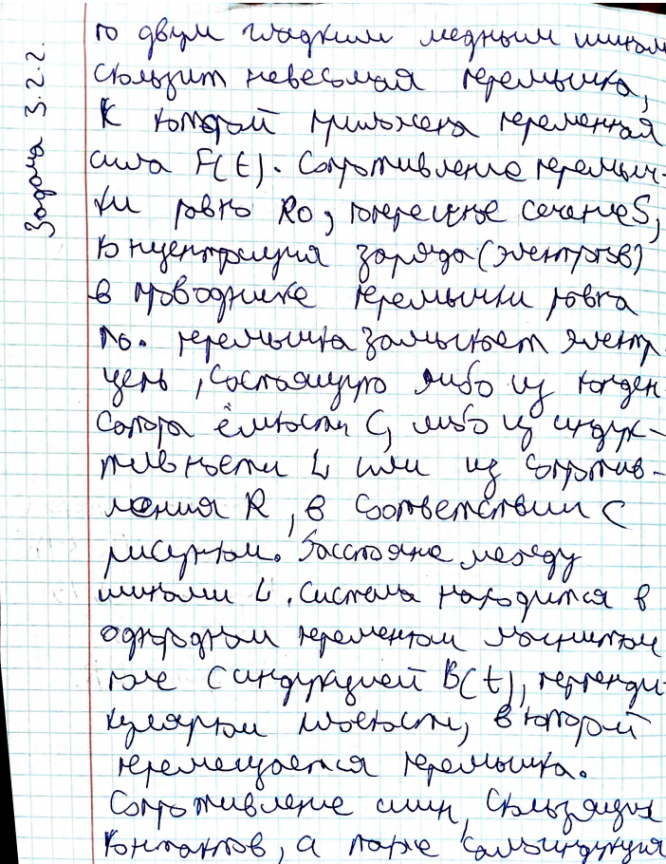 Задача 3.2.2.
по двум гладким медным шинам
скользит невесомая перемычка,
к которой приложена переменная
сила F(t). Сопротивление перемыч-
ки равно R0, поперечное сечение S,
концентрация заряда (электронов)
в проводнике перемычки равна
no. перемычка замыкает электр.
цепь, состоящую либо из конден
сатора ёмкости C, либо из индук-
тивности L или из сопротив-
ления R, в соответствии с
рисунком. Расстояне между
шинами L. Система находится в
однородном переменном магнитном
поле с индукцией B(t), перпенди-
кулярном плоскости, в которой
перемещается перемычка.
Сопротивление шин, скользящих
контактов, а также самоиндукция